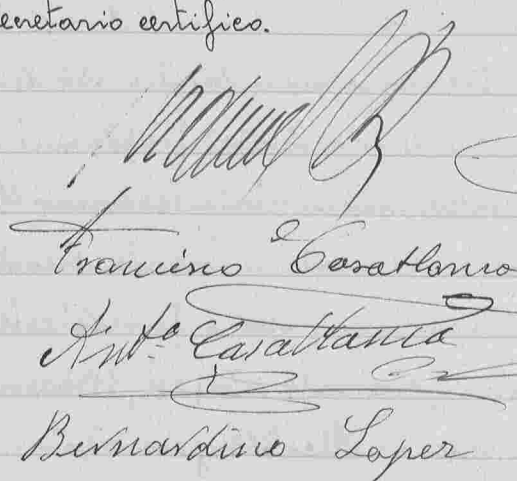 secretario certifico.
Manuel
Francisco Casablanca
Antº Casablanca
Bernardino Lopez